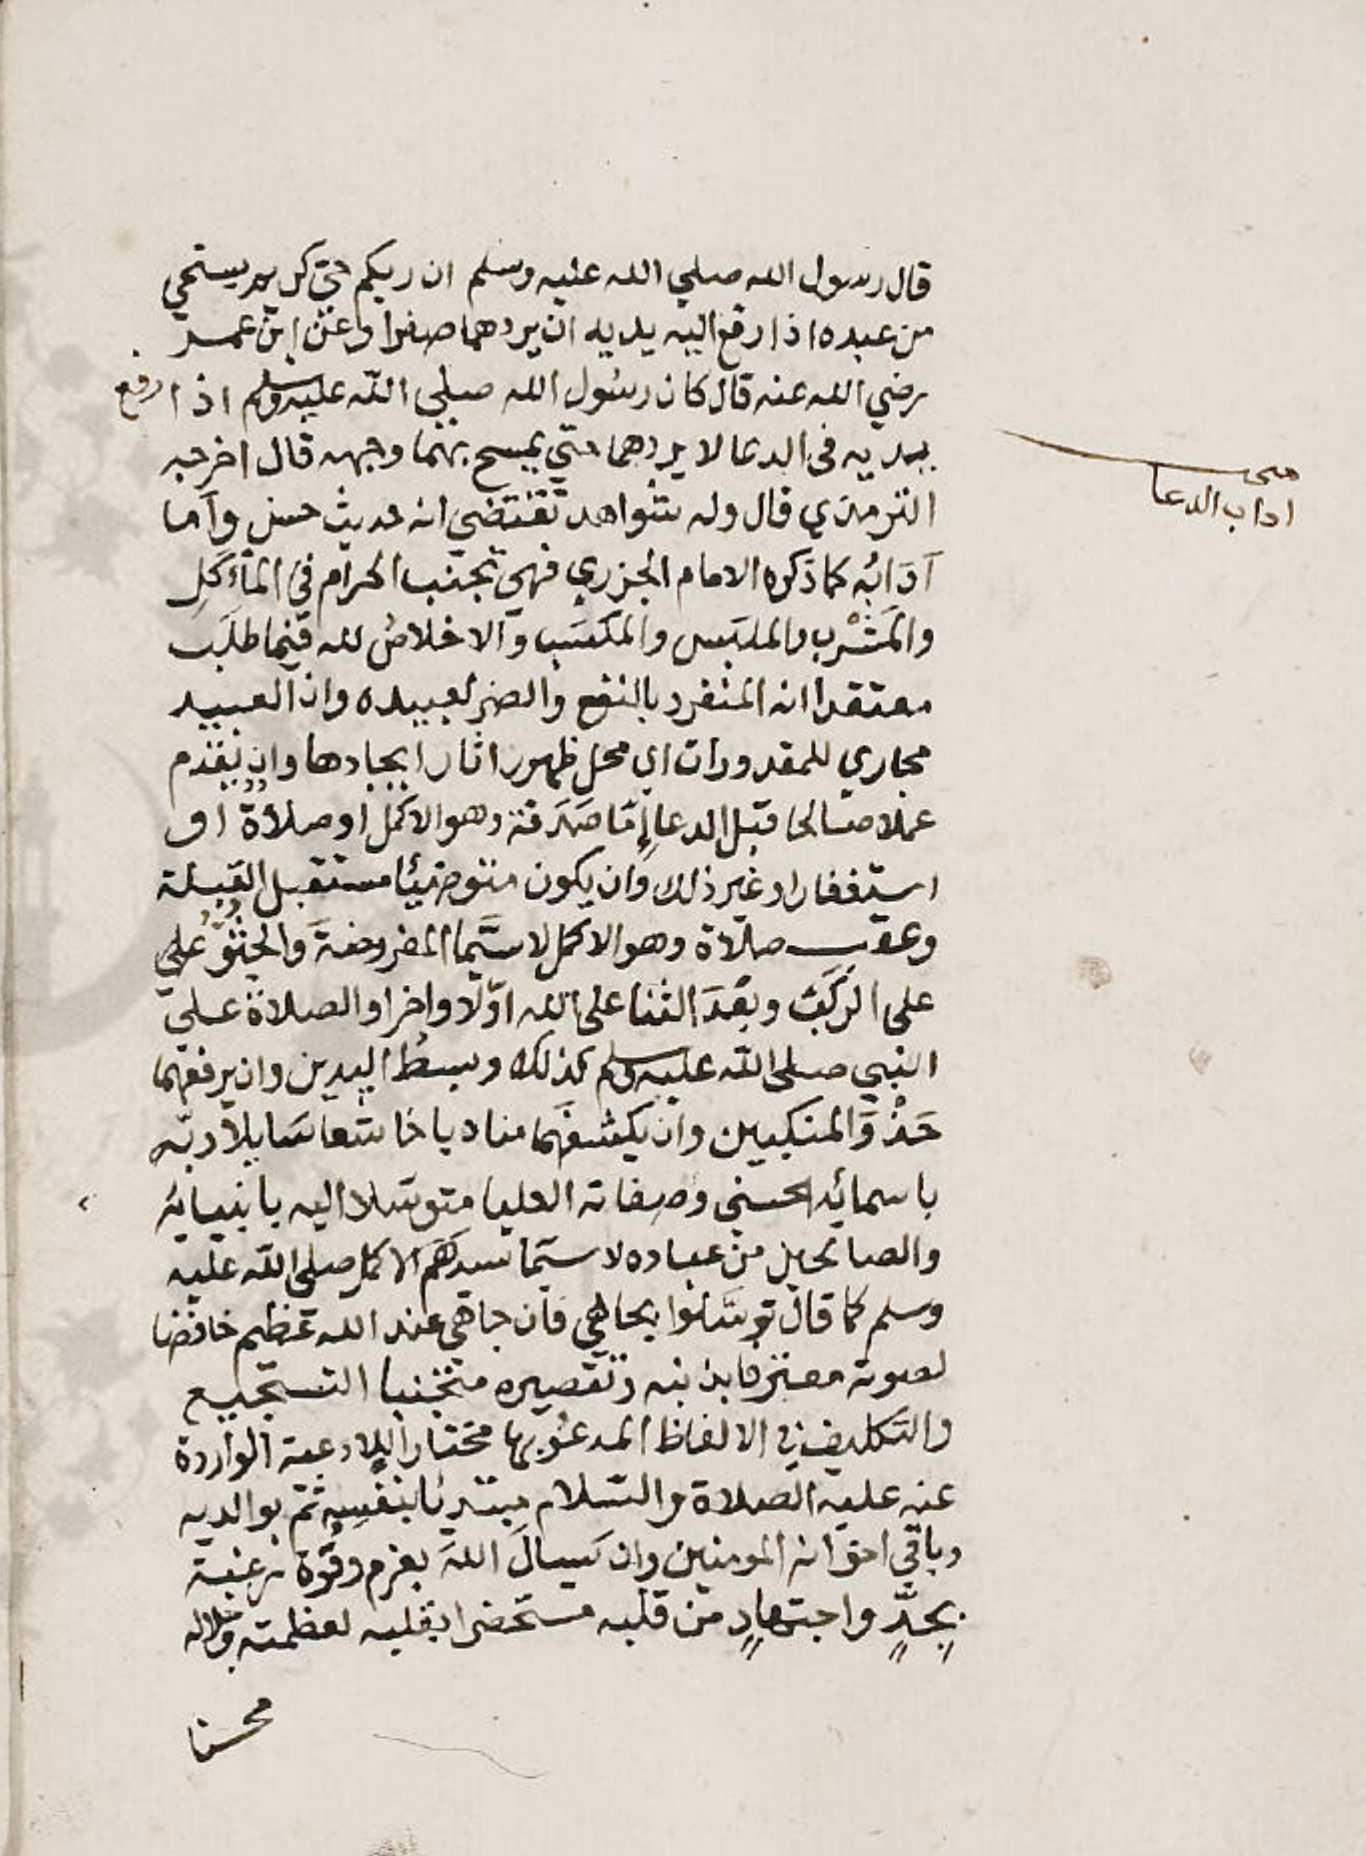 قال رسول الله صلي الله عليه وسلم ان ربكم حي كريم يستحي
من عبده اذا رفع اليه يديه ان يردهما صفرا وعن ابن عمر
رضي الله عنه قال كان رسول الله صلي الله عليه وسلم اذا رفع
يديه في الدعا لا يردهما حتي يمسح بهما وجهه قال اخرجه
الترمذي قال وله شواهد تقتضي انه حديث حسن وآما
آدَابُه كما ذكره الامام الجزري فهي تجنب الحرام في المأكَلِ
والمَشْرب والملبَس والمكسَب والاخلاصُ لله فيما طلَبَ
معتقدا انه المنفرد بالنفع والضر لعبيده وان العبيد
مجاري للمقدورات اي محل ظهور اثار ايجادها وان يقدم
عملا صالحا قبل الدعا إِمّا صَدَقة وهو الاكمل او صلاة او
استغفار او غير ذلك وان يكون متوضئا مستقبل القبلة
وعقب صلاة وهو الاكمل لا سيَّما المفروضةَ والجُثُوُّ علي
علي الركَب وبعْدَ الثنا على الله اوّلا واخرا والصلاة علي
النبي صلى الله عليه وسلم كذلك وبسطُ اليدين وان يرفعهما
حَذْوَ المنكبين وان يكشفَهما مناديا خاشعا سَايلا ربّه
باسمائه الحسني وصِفاته العليا متوسّلا اليه بانبيائه
والصالحين من عباده لا سيّما سيدهَم الاكمل صلى الله عليه
وسلم كما قال توسَّلوا بجاهي فان جاهي عند الله عظيم خافضا
لصوته معترفا بذنبه وتقصيره متجنبا التسجيع
والتكليف في الالفاظ المدعُوّ بها مختارا للادعية الواردة
عنه عليه الصلاة والسّلام مبتدئا بنفسِه ثمّ بوالديه
وباقي اخوانه المومنين وان يَسالَ اللهَ بعزم وقُوّة رغبة
بجدٍّ واجتهادٍ من قلبه مستحضرا بقلبه لعظمته وجلاله
محسنا
اداب الدعا